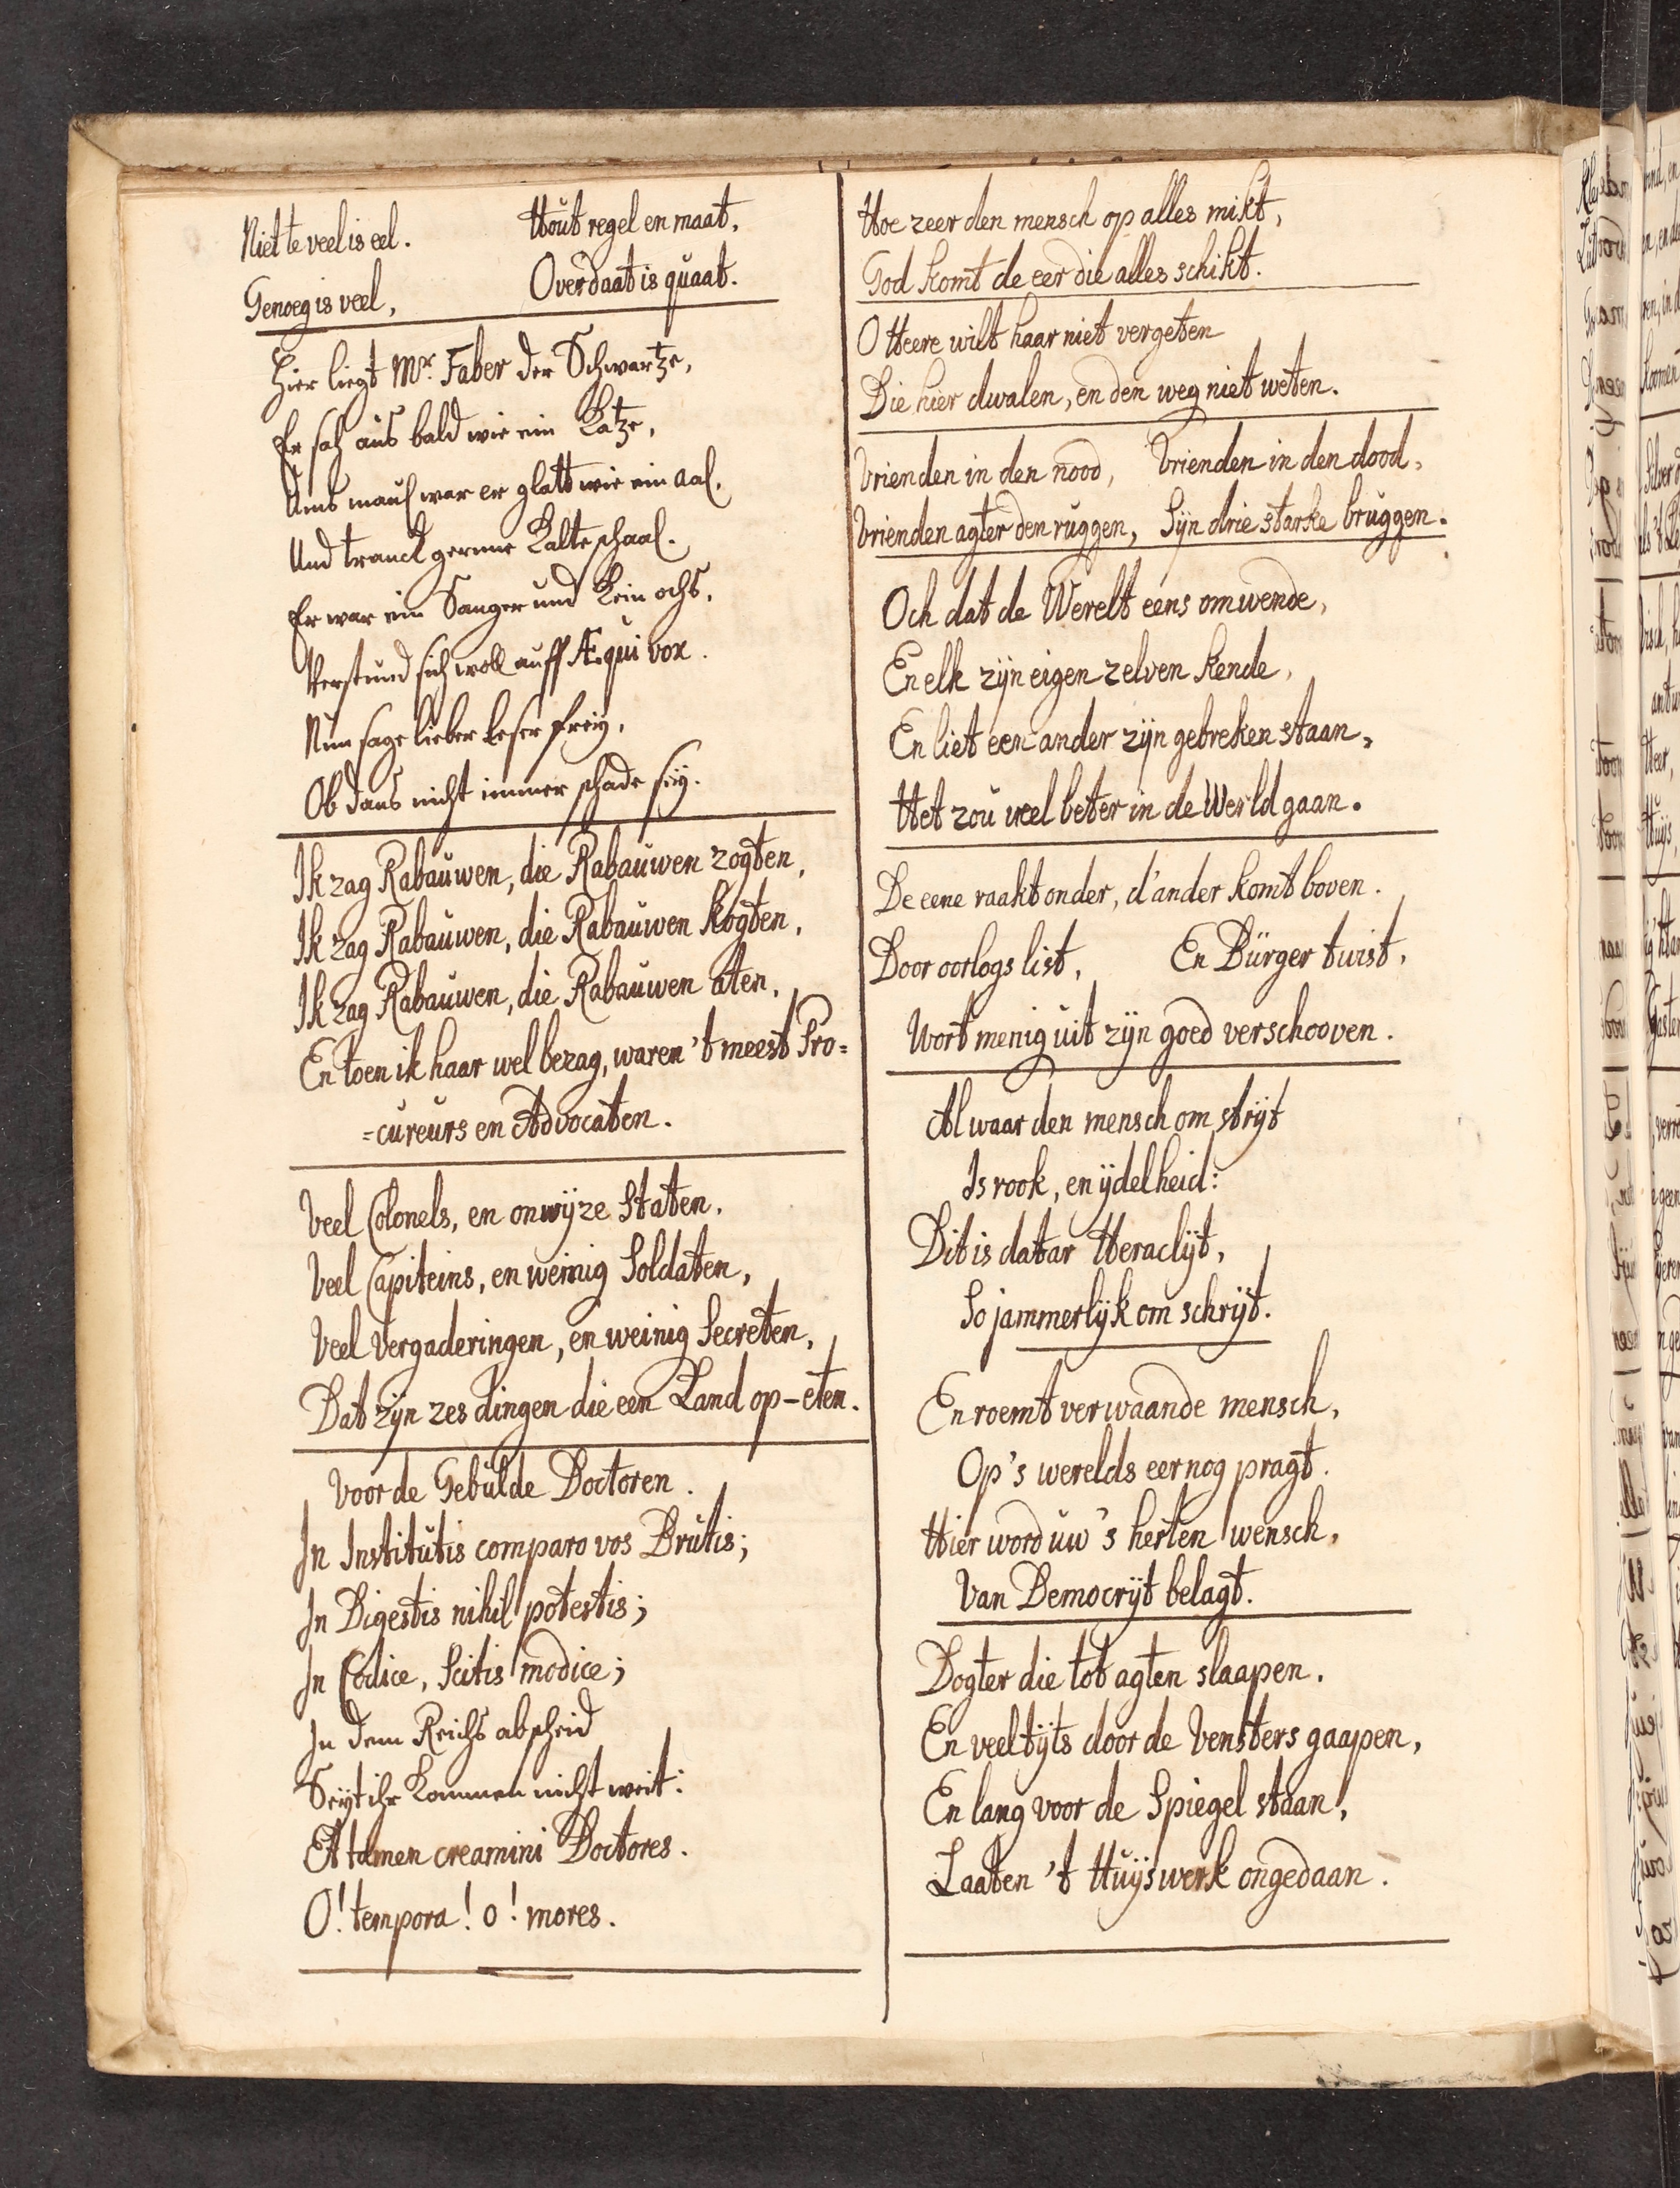 Niet te veel is eel. Hout regel en maat,
Genoeg is veel, Overdaat is quaat.
Hier liegt Mr. Faber der Schwartze,
Er sah aus bald wie ein Katze,
Ums maul war er glatt wie ein aal.
Und tranck gerenne Kalte schaal.
Er war ein Sanger und Kein ochs,
Verstund sich woll auff Æqui vox.
Nun sage lieber Leser freÿ,
Ob daus nicht immer schade seÿ.
Ik zag Rabauwen, die Rabauwen zogten,
Ik zag Rabauwen, die Rabauwen kogten,
Ik zag Rabauwen, die Rabauwen aten,
En toen ik haar wel bezag, waren 't meest Pro=
=cureurs en Advocaten.
Veel Colonels, en onwijze Staten,
Veel Capiteins, en weinig Soldaten,
Veel Vergaderingen, en weinig Secreten,
Dat zijn zes dingen die een Land op-eten.
Voor de Gebulde Doctoren.
In Institutis comparo vos Brutis;
In Digestis nihil potestis;
In Codice, Scitis modice;
In dem Reichs abscheid
Seÿt ihr Kommen nicht weit:
Et tamen creamini Doctores.
O! tempora! o! mores.
Hoe zeer den mensch op alles mikt,
God komt de eer die alles schikt.
O Heere wilt haar niet vergeten
Die hier dwalen, en den weg niet weten.
Vrienden in den nood, Vrienden in den dood,
Vrienden agter den ruggen, Sijn drie starke bruggen.
Och dat de Werelt eens omwende,
En elk zijn eigen zelven kende,
En liet een ander zijn gebreken staan,
Het zou veel beter in de Werld gaan.
De eene raakt onder, d'ander komt boven.
Door oorlogs list, En Bürger twist,
Wort menig uit zijn goed verschooven.
Al waar den mensch om strijt
Is rook, en ijdelheid:
Dit is dattar Heraclijt,
So jammerlijk om schrijt.
En roemt verwaande mensch,
Op 's werelds eer nog pragt.
Hier word uw 's herten wensch,
Van Democrijt belagt.
Dogter die tot agten slaapen.
En veeltijts door de Vensters gaapen,
En lang voor de Spiegel staan,
Laaten 't Huijswerk ongedaan.